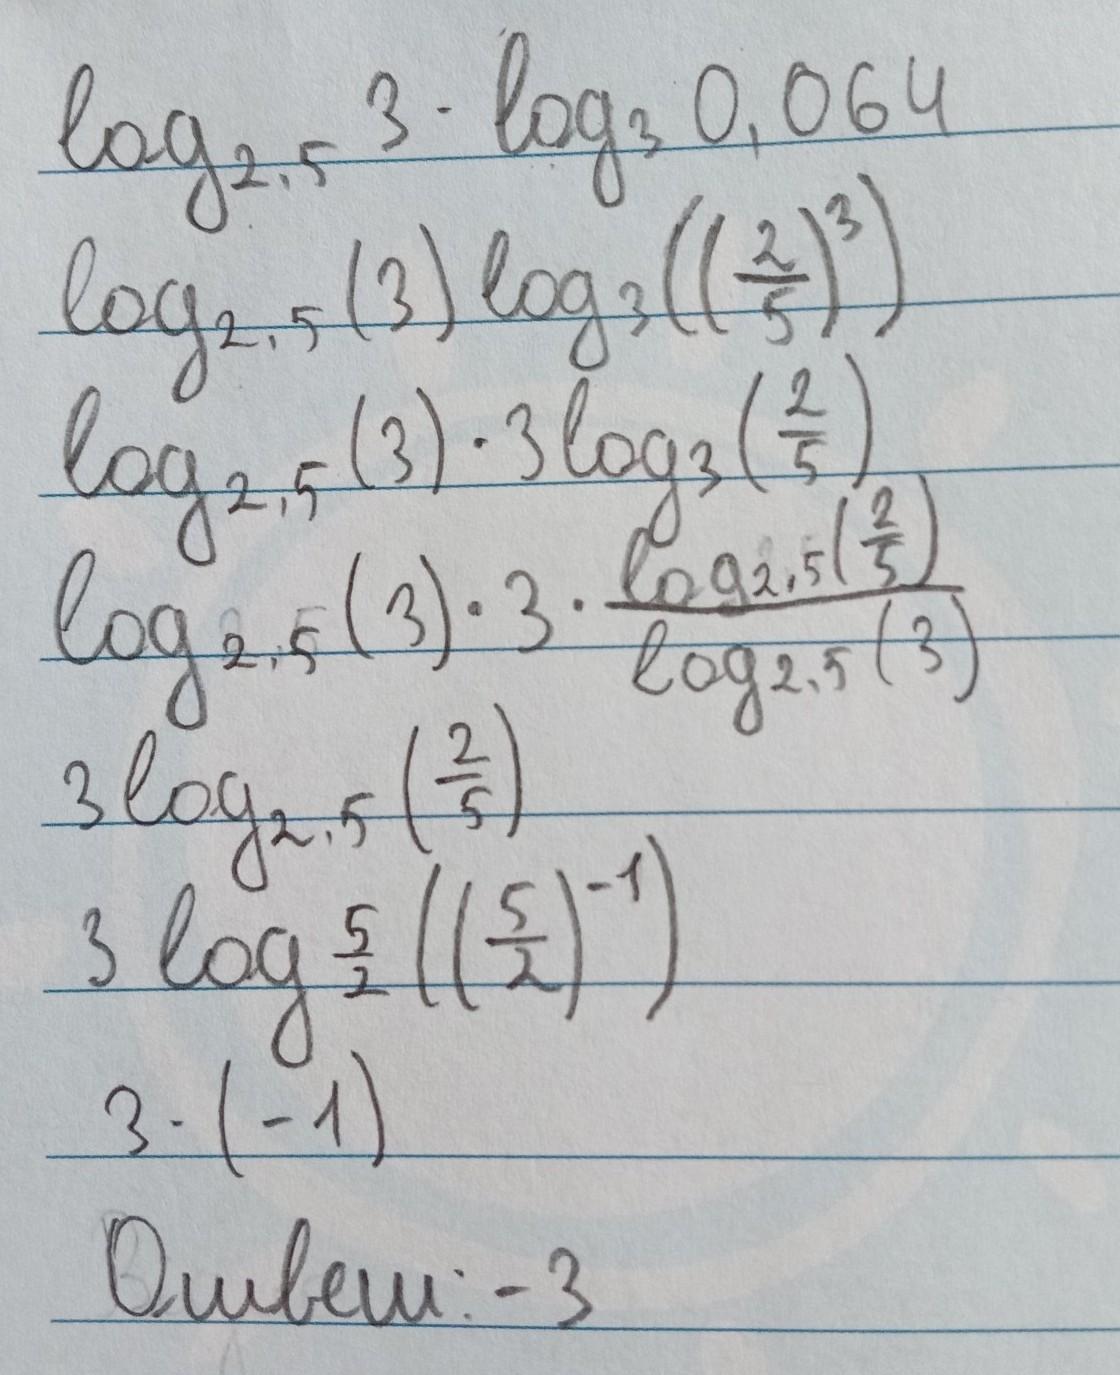 log₂,₅ 3 · log₃ 0,064
log₂,₅ (3) log₃ ((2/5)³)
log₂,₅ (3) · 3 log₃ (2/5)
log₂,₅ (3) · 3 · log₂,₅(2/5) / log₂,₅(3)
3 log₂,₅ (2/5)
3 log 5/2 ((5/2)⁻¹)
3 · (-1)
Ответ: -3